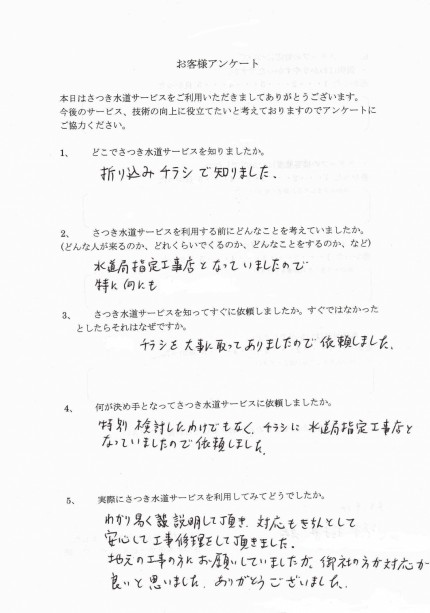 お客様アンケート
本日はさつき水道サービスをご利用いただきましてありがとうございます。
今後のサービス、技術の向上に役立てたいと考えておりますのでアンケートに
ご協力ください。
1、 どこでさつき水道サービスを知りましたか。
折り込みチラシで知りました、
2、 さつき水道サービスを利用する前にどんなことを考えていましたか。
(どんな人が来るのか、どれくらいでくるのか、どんなことをするのか、など)
水道局指定工事店となっていましたので
特に何にも
3、 さつき水道サービスを知ってすぐに依頼しましたか。すぐではなかった
としたらそれはなぜですか。
チラシを大事に取ってありましたので依頼しました、
4、 何が決め手となってさつき水道サービスに依頼しましたか。
特別 検討したわけでもなく、チラシに 水道局指定工事店と
なっていましたので依頼しました、
5、 実際にさつき水道サービスを利用してみてどうでしたか。
わかり易く説明して頂き、対応もきちんとして
安心して工事修理をして頂きました、
地元の工事の方にお願いしていましたが、御社の方が対応が
良いと思いました、ありがとうございました、